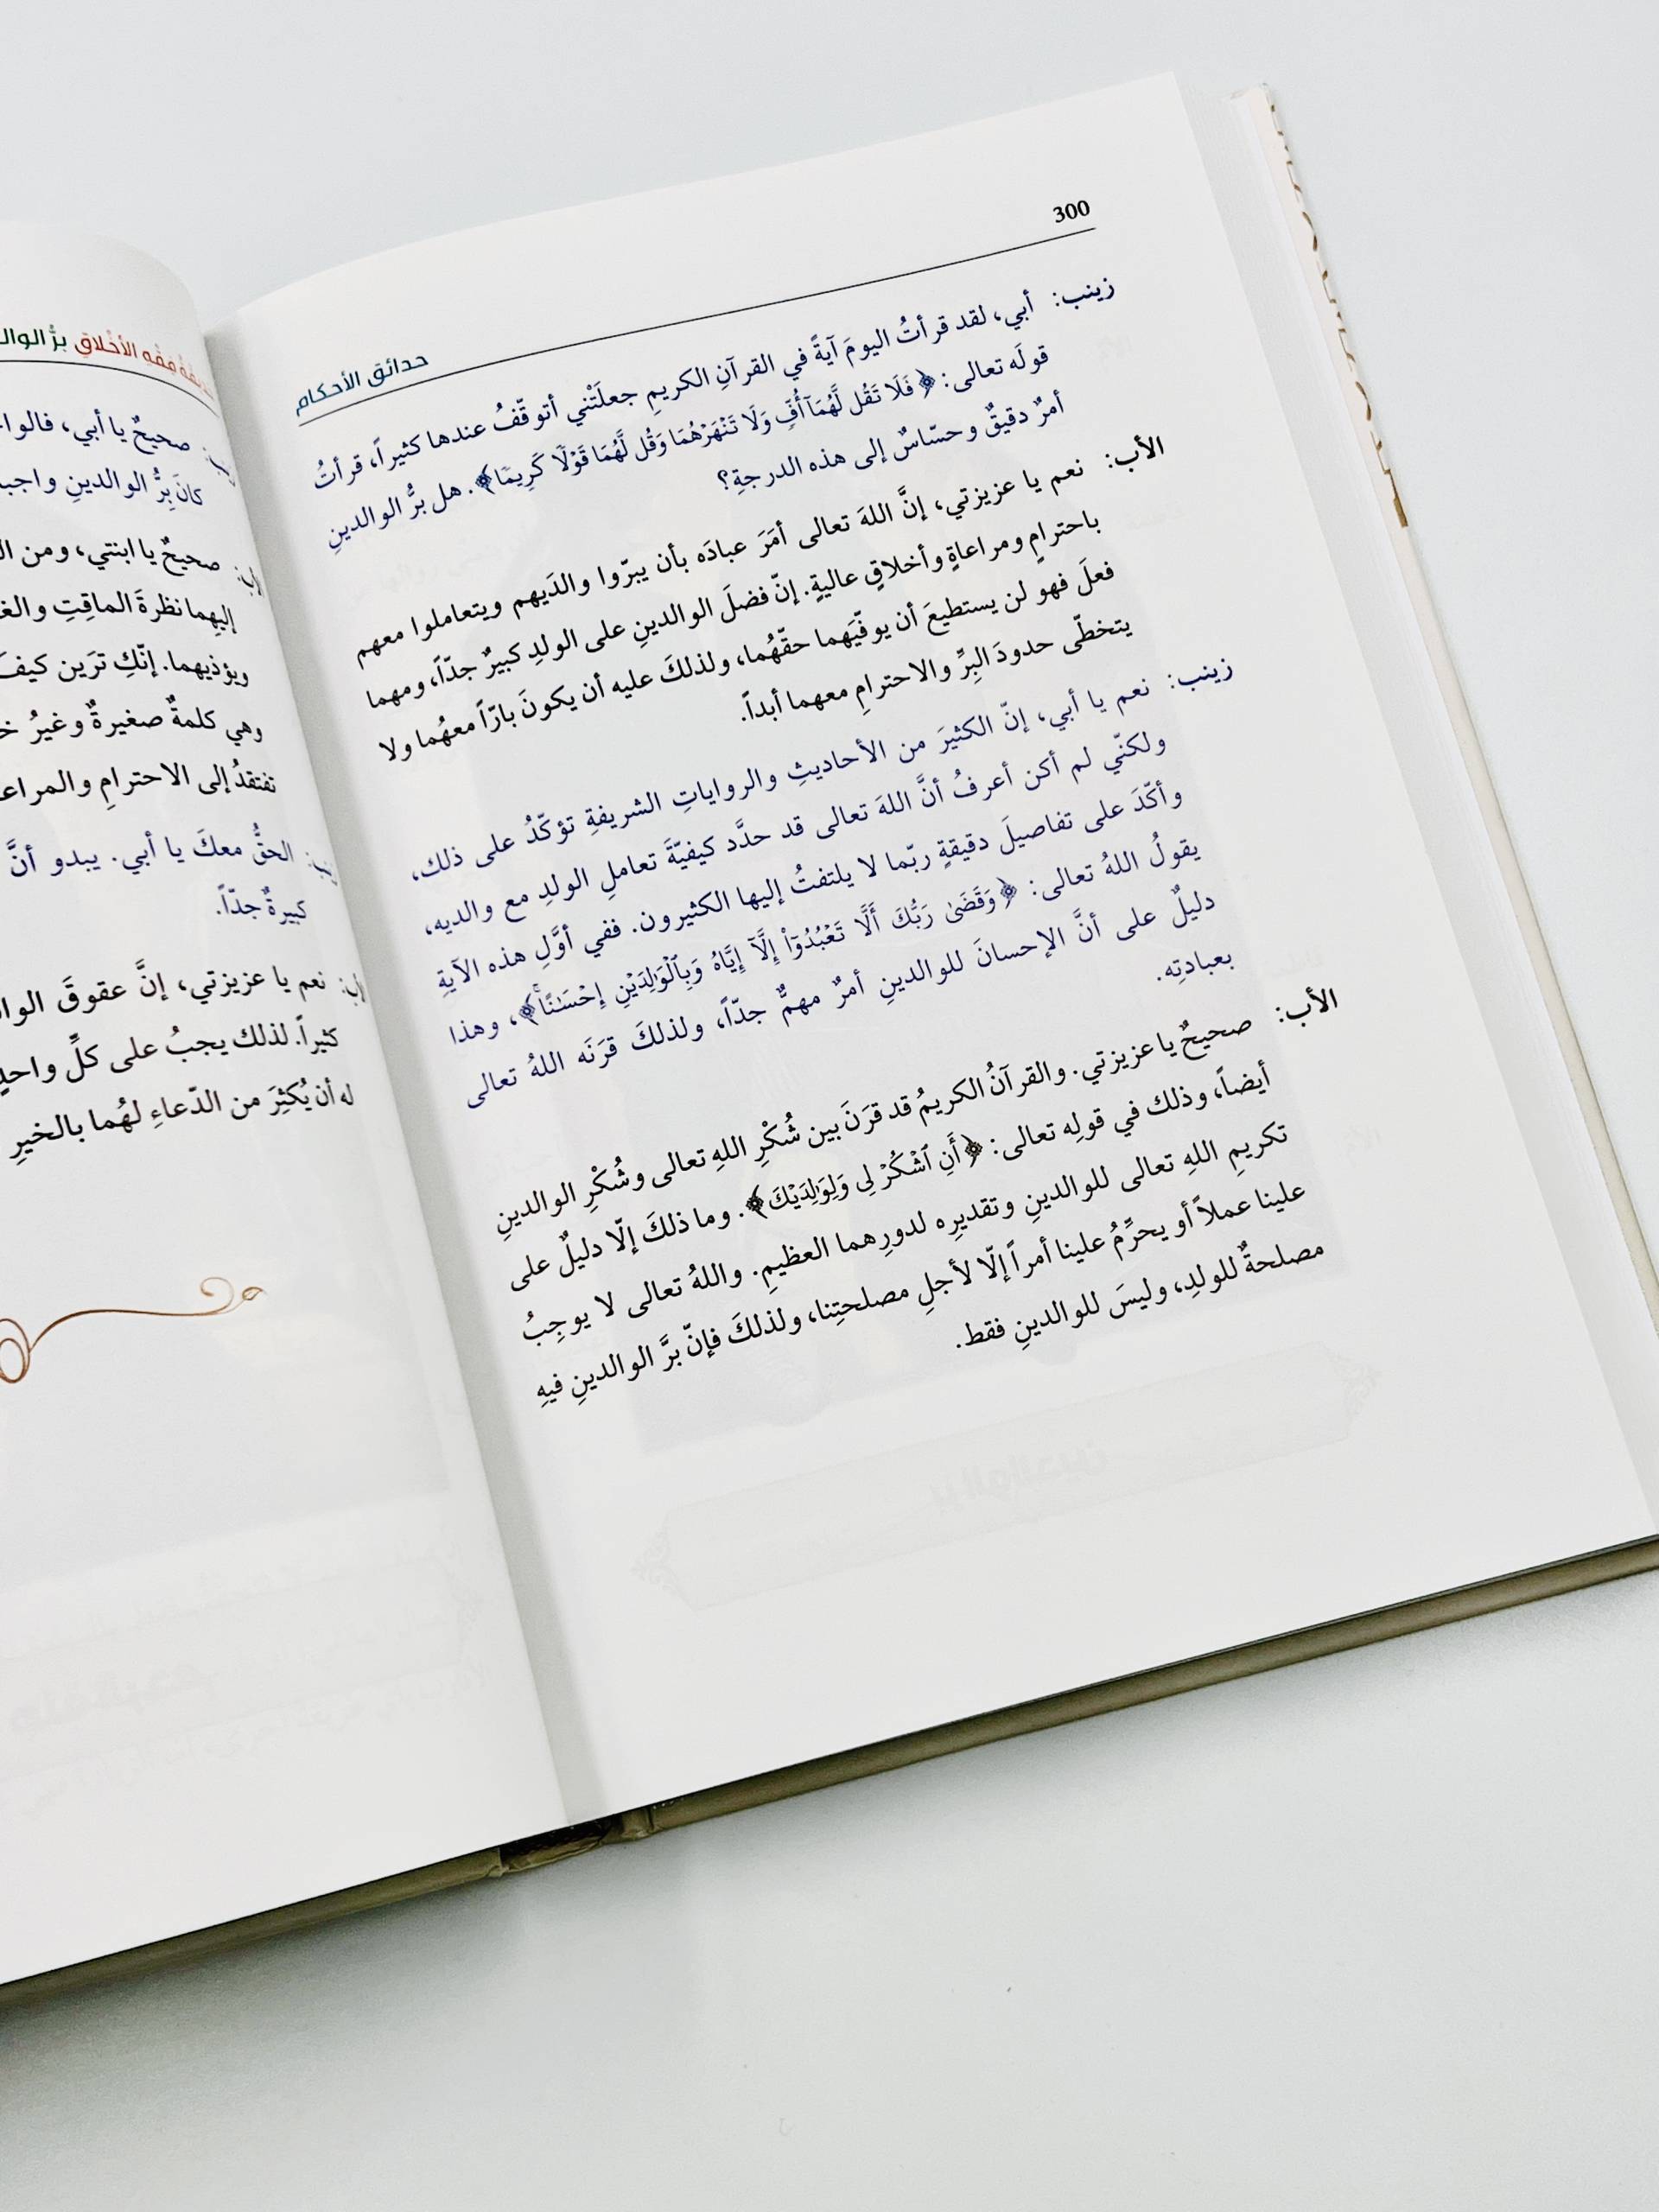 300
حدائق الأحكام
زينب: أبي، لقد قرأتُ اليومَ آيةً في القرآنِ الكريمِ جعلَتْني أتوقّفُ عندها كثيراً، قرأتُ
قولَه تعالى: ﴿فَلَا تَقُل لَّهُمَآ أُفٍّ وَلَا تَنْهَرْهُمَا وَقُل لَّهُمَا قَوْلًا كَرِيمًا﴾. هل برُّ الوالدينِ
أمرٌ دقيقٌ وحسّاسٌ إلى هذه الدرجةِ؟
الأب: نعم يا عزيزتي، إنَّ اللهَ تعالى أمَرَ عبادَه بأن يبرّوا والدَيهم ويتعاملوا معهم
باحترامٍ ومراعاةٍ وأخلاقٍ عاليةٍ. إنّ فضلَ الوالدينِ على الولدِ كبيرٌ جدّاً، ومهما
فعلَ فهو لن يستطيعَ أن يوفّيَهما حقّهُما، ولذلكَ عليه أن يكونَ بارّاً معهُما ولا
يتخطّى حدودَ البِرِّ والاحترامِ معهما أبداً.
زينب: نعم يا أبي، إنّ الكثيرَ من الأحاديثِ والرواياتِ الشريفةِ تؤكّدُ على ذلك،
ولكنّي لم أكن أعرفُ أنَّ اللهَ تعالى قد حدَّد كيفيّةَ تعاملِ الولدِ مع والديه،
وأكّدَ على تفاصيلَ دقيقةٍ ربّما لا يلتفتُ إليها الكثيرون. ففي أوَّلِ هذه الآيةِ
يقولُ اللهُ تعالى: ﴿وَقَضَىٰ رَبُّكَ أَلَّا تَعْبُدُوٓاْ إِلَّآ إِيَّاهُ وَبِٱلْوَٰلِدَيْنِ إِحْسَٰنًا﴾، وهذا
دليلٌ على أنَّ الإحسانَ للوالدينِ أمرٌ مهمٌّ جدّاً، ولذلكَ قرَنَه اللهُ تعالى
بعبادتِه.
الأب: صحيحٌ يا عزيزتي. والقرآنُ الكريمُ قد قرَنَ بين شُكْرِ اللهِ تعالى وشُكْرِ الوالدينِ
أيضاً، وذلك في قولِه تعالى: ﴿أَنِ ٱشْكُرْ لِى وَلِوَٰلِدَيْكَ﴾. وما ذلكَ إلّا دليلٌ على
تكريمِ اللهِ تعالى للوالدينِ وتقديرِه لدورِهما العظيمِ. واللهُ تعالى لا يوجِبُ
علينا عملاً أو يحرِّمُ علينا أمراً إلّا لأجلِ مصلحتِنا، ولذلكَ فإنّ برَّ الوالدينِ فيهِ
مصلحةٌ للولدِ، وليسَ للوالدينِ فقط.
فِقْهِ الأخْلاقِ برُّ
صحيحٌ يا أبي،
كانَ بِرُّ الوالدينِ
صحيحٌ يا ابنتي، ومن
إليهِما نظرةَ الماقِتِ
ويؤذيهما. إنّكِ ترَين كيفَ
وهي كلمةٌ صغيرةٌ وغيرُ
تفتقدُ إلى الاحترامِ
الحقُّ معكَ يا أبي. يبدو أنَّ
كبيرةٌ جدّاً.
نعم يا عزيزتي، إنَّ عقوقَ
كثيراً. لذلك يجبُ على كلِّ واحدٍ
له أن يُكثِرَ من الدّعاءِ لهُما بالخيرِ